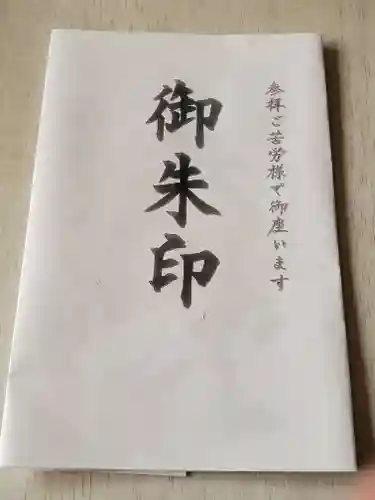 参拝ご苦労様で御座います
御朱印